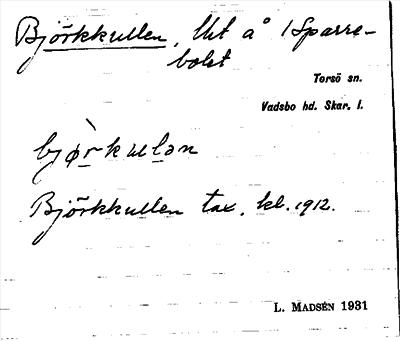 Björkkullen, lht å /Sparre-
bolet
Torsö sn.
Vadsbo hd. Skar. l.
bjø̀rkulən
Björkkullen tax. kl. 1912.
L. MADSÉN 1931